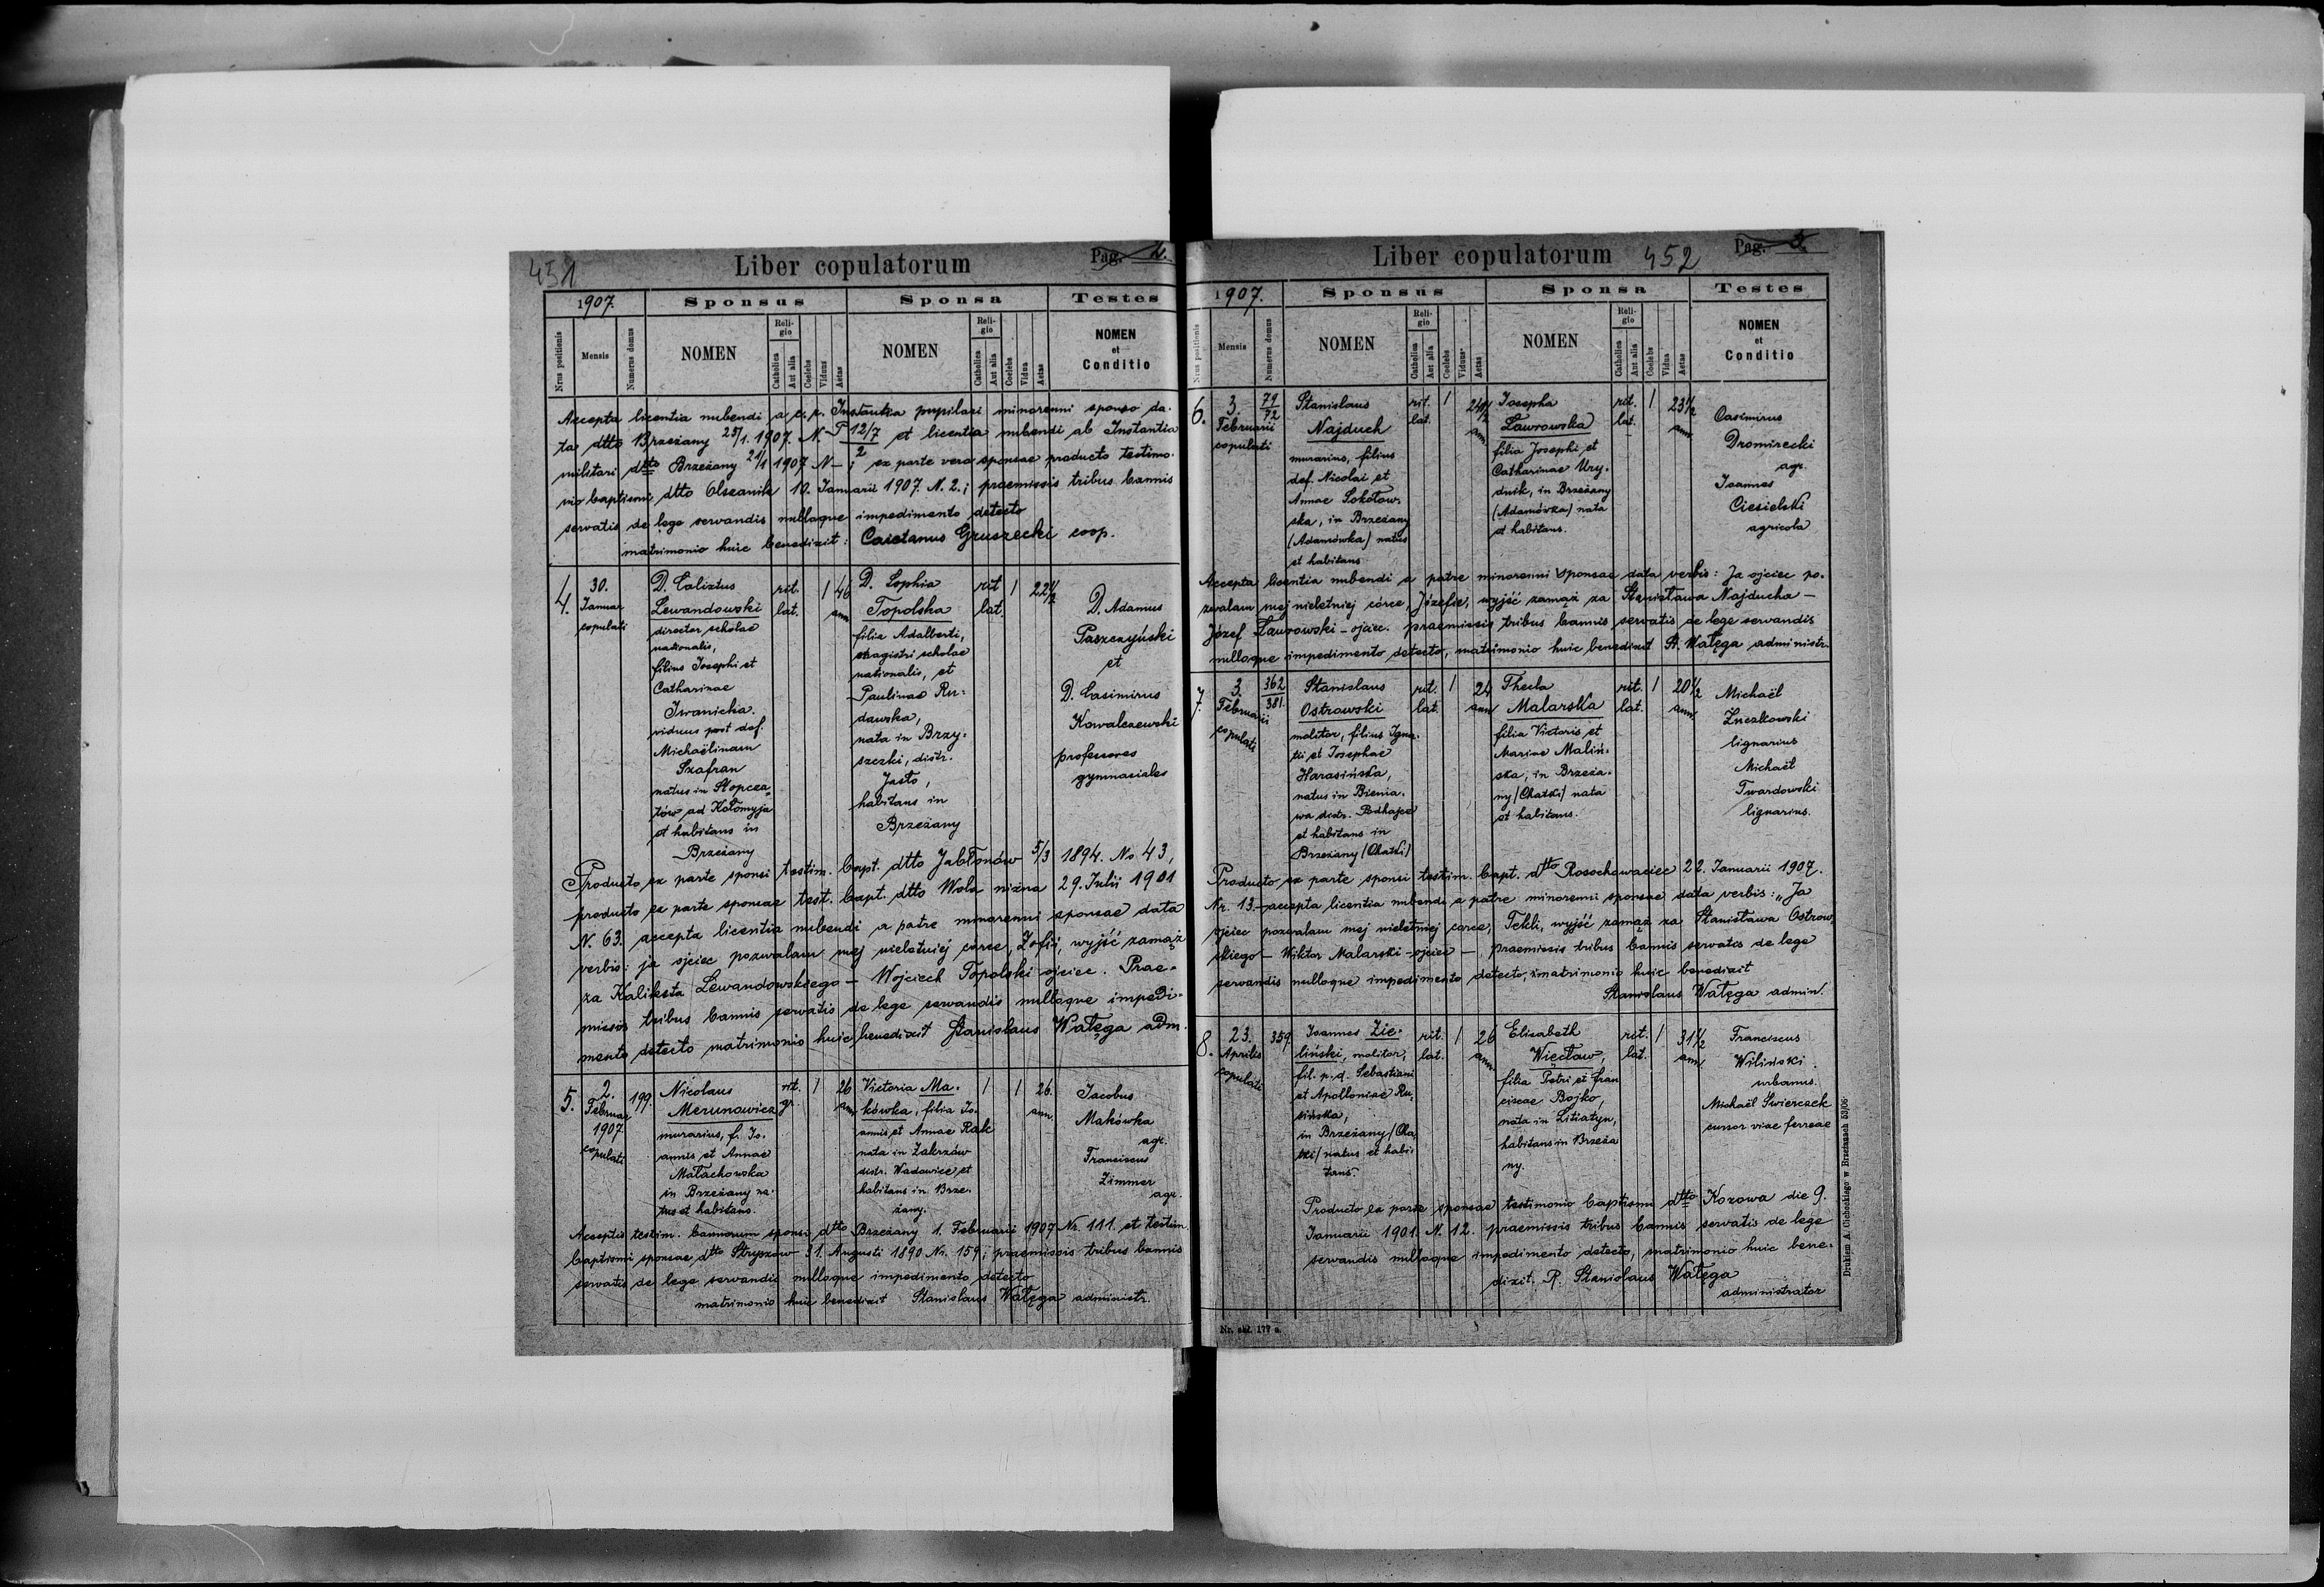 451
Liber copulatorum
Pag. 2.
1907.
Sponsus
Sponsa
Testes
Nrus positionis
Mensis
Numerus domus
NOMEN
Religio
Catholica
Aut alia
Coelebs
Viduus
Aetas
NOMEN
Religio
Catholica
Aut alia
Coelebs
Vidua
Aetas
NOMEN
et
Conditio
Accepta licentia nubendi a c. r. Instantia pupilari minorenni sponso da-
ta dtto Brzeżany 25/1. 1907. N. P 12/7 et licentia nubendi ab Instantia
militari dtto Brzeżany 21/1 1907 N — ; ex parte vero sponsae producto testimo-
nio baptismi dtto 10. Januarii 1907. N. 2.; praemissis tribus bannis
servatis de lege servandis nulloque impedimento detecto
matrimonio huic benedixit: Caietanus Gruszecki coop.
4.
30.
Januar
copulati
D. Calixtus
Lewandowski
director scholae
nationalis,
filius Josephi et
Catharinae
Iwanicka.
viduus post def.
Michaëlinam
Szafran
natus in Stopcza-
tów ad Kołomyja
et habitans in
Brzeżany
rit.
lat.
1
46
ann
D. Sophia
Topolska
filia Adalberti,
magistri scholae
nationalis, et
Paulinae Ru-
dawska,
nata in Brzy-
szczki, distr.
Jasło,
habitans in
Brzeżany
rit
lat.
1
22 1/2
D. Adamus
Paszczyński
et
D. Casimirus
Kowalczewski
professores
gymnasiales
Producto ex parte sponsi testim. bapt. dtto Jabłonów 5/3 1894. No 43,
producto ex parte sponsae test. bapt. dtto Wola niżna 29. Julii 1901
N. 63. accepta licentia nubendi a patre minorenni sponsae data
verbis: ja ojciec pozwalam mej nieletniej córce, Zofii, wyjść zamąż
za Kaliksta Lewandowskiego — Wojciech Topolski ojciec. Prae-
missis tribus bannis servatis de lege servandis nulloque impedi-
mento detecto matrimonio huic benedixit Stanislaus Wałęga adm.
5.
2.
Februar
1907.
copulati
199.
Nicolaus
Merunowicz
murarius, f. Jo-
annis et Annae
Małachowska
in Brzeżany na-
tus et habitans.
rit.
gr.
1
26
ann
Victoria Ma-
kówka, filia Jo-
annis et Annae Rak
nata in Zakrzów
distr. Wadowice et
habitans in Brze-
żany.
1
1
26.
ann.
Jacobus
Makówka
agr.
Franciscus
Zimmer
agr.
Acceptis testim. bannorum sponsi dtto Brzeżany 1. Februarii 1907 Nr. 111. et testim.
baptismi sponsae dtto Stryszów 31. Augusti 1890 Nr. 159; praemissis tribus bannis
servatis de lege servandis nulloque impedimento detecto
matrimonio huic benedixit Stanislaus Wałęga administr.
Liber copulatorum
452
Pag. 3.
1907.
Sponsus
Sponsa
Testes
Nrus positionis
Mensis
Numerus domus
NOMEN
Religio
Catholica
Aut alia
Coelebs
Viduus
Aetas
NOMEN
Religio
Catholica
Aut alia
Coelebs
Vidua
Aetas
NOMEN
et
Conditio
6.
3.
Februarii
copulati
79
72
Stanislaus
Najduch
murarius, filius
def. Nicolai et
Annae Sokołow-
ska, in Brzeżany
(Adamówka) natus
et habitans
rit.
lat.
1
24 1/2
ann.
Josepha
Ławrowska
filia Josephi et
Catharinae Ury-
dnik, in Brzeżany
(Adamówka) nata
et habitans.
rit.
lat.
1
23 1/2
ann.
Casimirus
Dromirecki
agr.
Joannes
Ciesielski
agricola
Accepta licentia nubendi a patre minorenni sponsae data verbis: Ja ojciec po-
zwalam mej nieletniej córce, Józefie, wyjść zamąż za Stanisława Najducha —
Józef Ławrowski - ojciec. praemissis tribus bannis servatis de lege servandis
nulloque impedimento detecto, matrimonio huic benedixit St. Wałęga administr.
7.
3.
Februarii
copulati
362
381.
Stanislaus
Ostrowski
molitor, filius Igna-
tii et Josephae
Harasińska,
natus in Bienia-
wa distr. Podhajce
et habitans in
Brzeżany (Chatki)
rit.
lat.
1
24
ann
Thecla
Malarska
filia Victoris et
Mariae Maliń-
ska, in Brzeża-
ny (Chatki) nata
et habitans.
rit.
lat.
1
20 1/2
ann
Michaël
lignarius
Michaël
Twardowski
lignarius.
Producto ex parte sponsi testim. bapt. dtto Rosochowaciec 22. Januarii 1907.
Nr. 13. — accepta licentia nubendi a patre minorenni sponsae data verbis: „Ja
ojciec pozwalam mej nieletniej córce, Tekli, wyjść zamąż za Stanisława Ostrow-
skiego — Wiktor Malarski - ojciec — praemissis tribus bannis servatis de lege
servandis nulloque impedimento detecto, matrimonio huic benedixit
Stanislaus Wałęga admin.
8.
23.
Aprilis
copulati
359
Joannes Zie-
liński, molitor,
fil. p. d. Sebastiani
et Apolloniae Ru-
sińska,
in Brzeżany (Cha-
tki) natus et habi-
tans.
rit.
lat.
1
26
ann
Elisabeth
Więcław,
filia Petri et Fran
ciscae Bojko,
nata in Litiatyn,
habitans in Brzeża
ny.
rit.
lat.
1
31 1/2
ann
Franciscus
Wiliński
urbanus.
Michaël Swierczek
cursor viae ferreae
Producto ex parte sponsae testimonio baptismi dtto Kozowa die 9.
Januarii 1901. N. 12. praemissis tribus bannis servatis de lege
servandis nulloque impedimento detecto, matrimonio huic bene-
dixit. R. Stanislaus Wałęga
administrator
Nr. skł. 177 a.
Drukiem A. Cichockiego w Brzeżanach 53/06